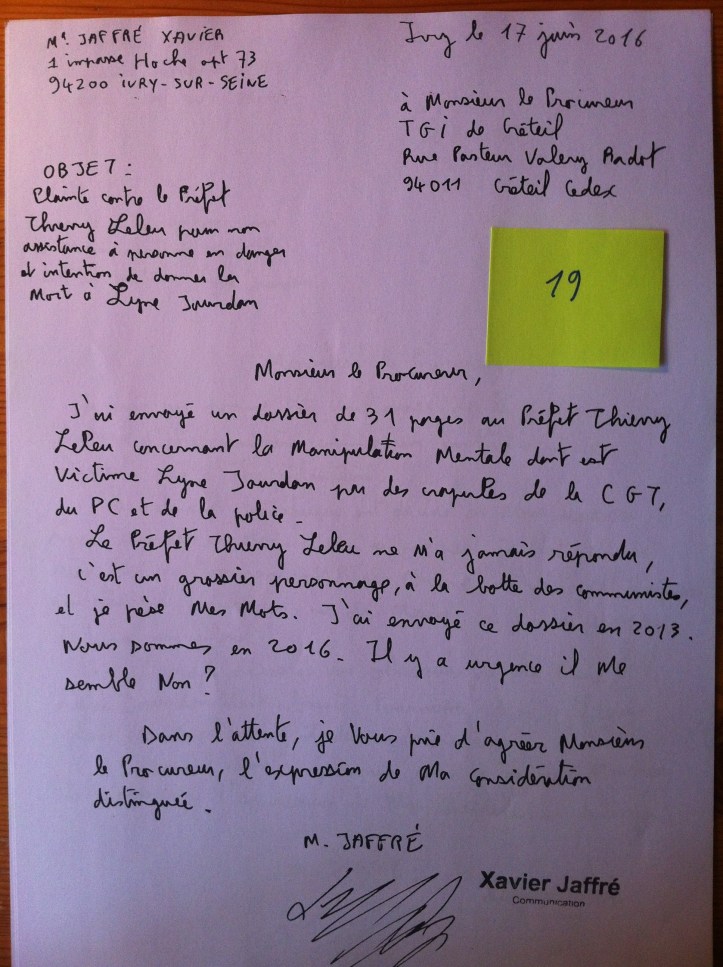 Mr. JAFFRÉ XAVIER
1 impasse Hoche apt 73
94200 IVRY-SUR-SEINE
Ivry le 17 juin 2016
à Monsieur le Procureur
TGI de Créteil
Rue Pasteur Valery Radot
94011 Créteil Cedex
OBJET :
Plainte contre le Préfet
Thierry Leleu pour non
assistance à personne en danger
et intention de donner la
Mort à Lyne Jourdan
19
Monsieur le Procureur,
J'ai envoyé un dossier de 31 pages au Préfet Thierry
Leleu concernant la Manipulation Mentale dont est
Victime Lyne Jourdan par des crapules de la CGT,
du PC et de la police.
Le Préfet Thierry Leleu ne m'a jamais répondu,
c'est un grossier personnage, à la botte des communistes,
et je pèse Mes Mots. J'ai envoyé ce dossier en 2013.
Nous sommes en 2016. Il y a urgence il Me
semble Non ?
Dans l'attente, je Vous prie d'agréer Monsieur
le Procureur, l'expression de Ma Considération
distinguée.
M. JAFFRÉ
Xavier Jaffré
Communication